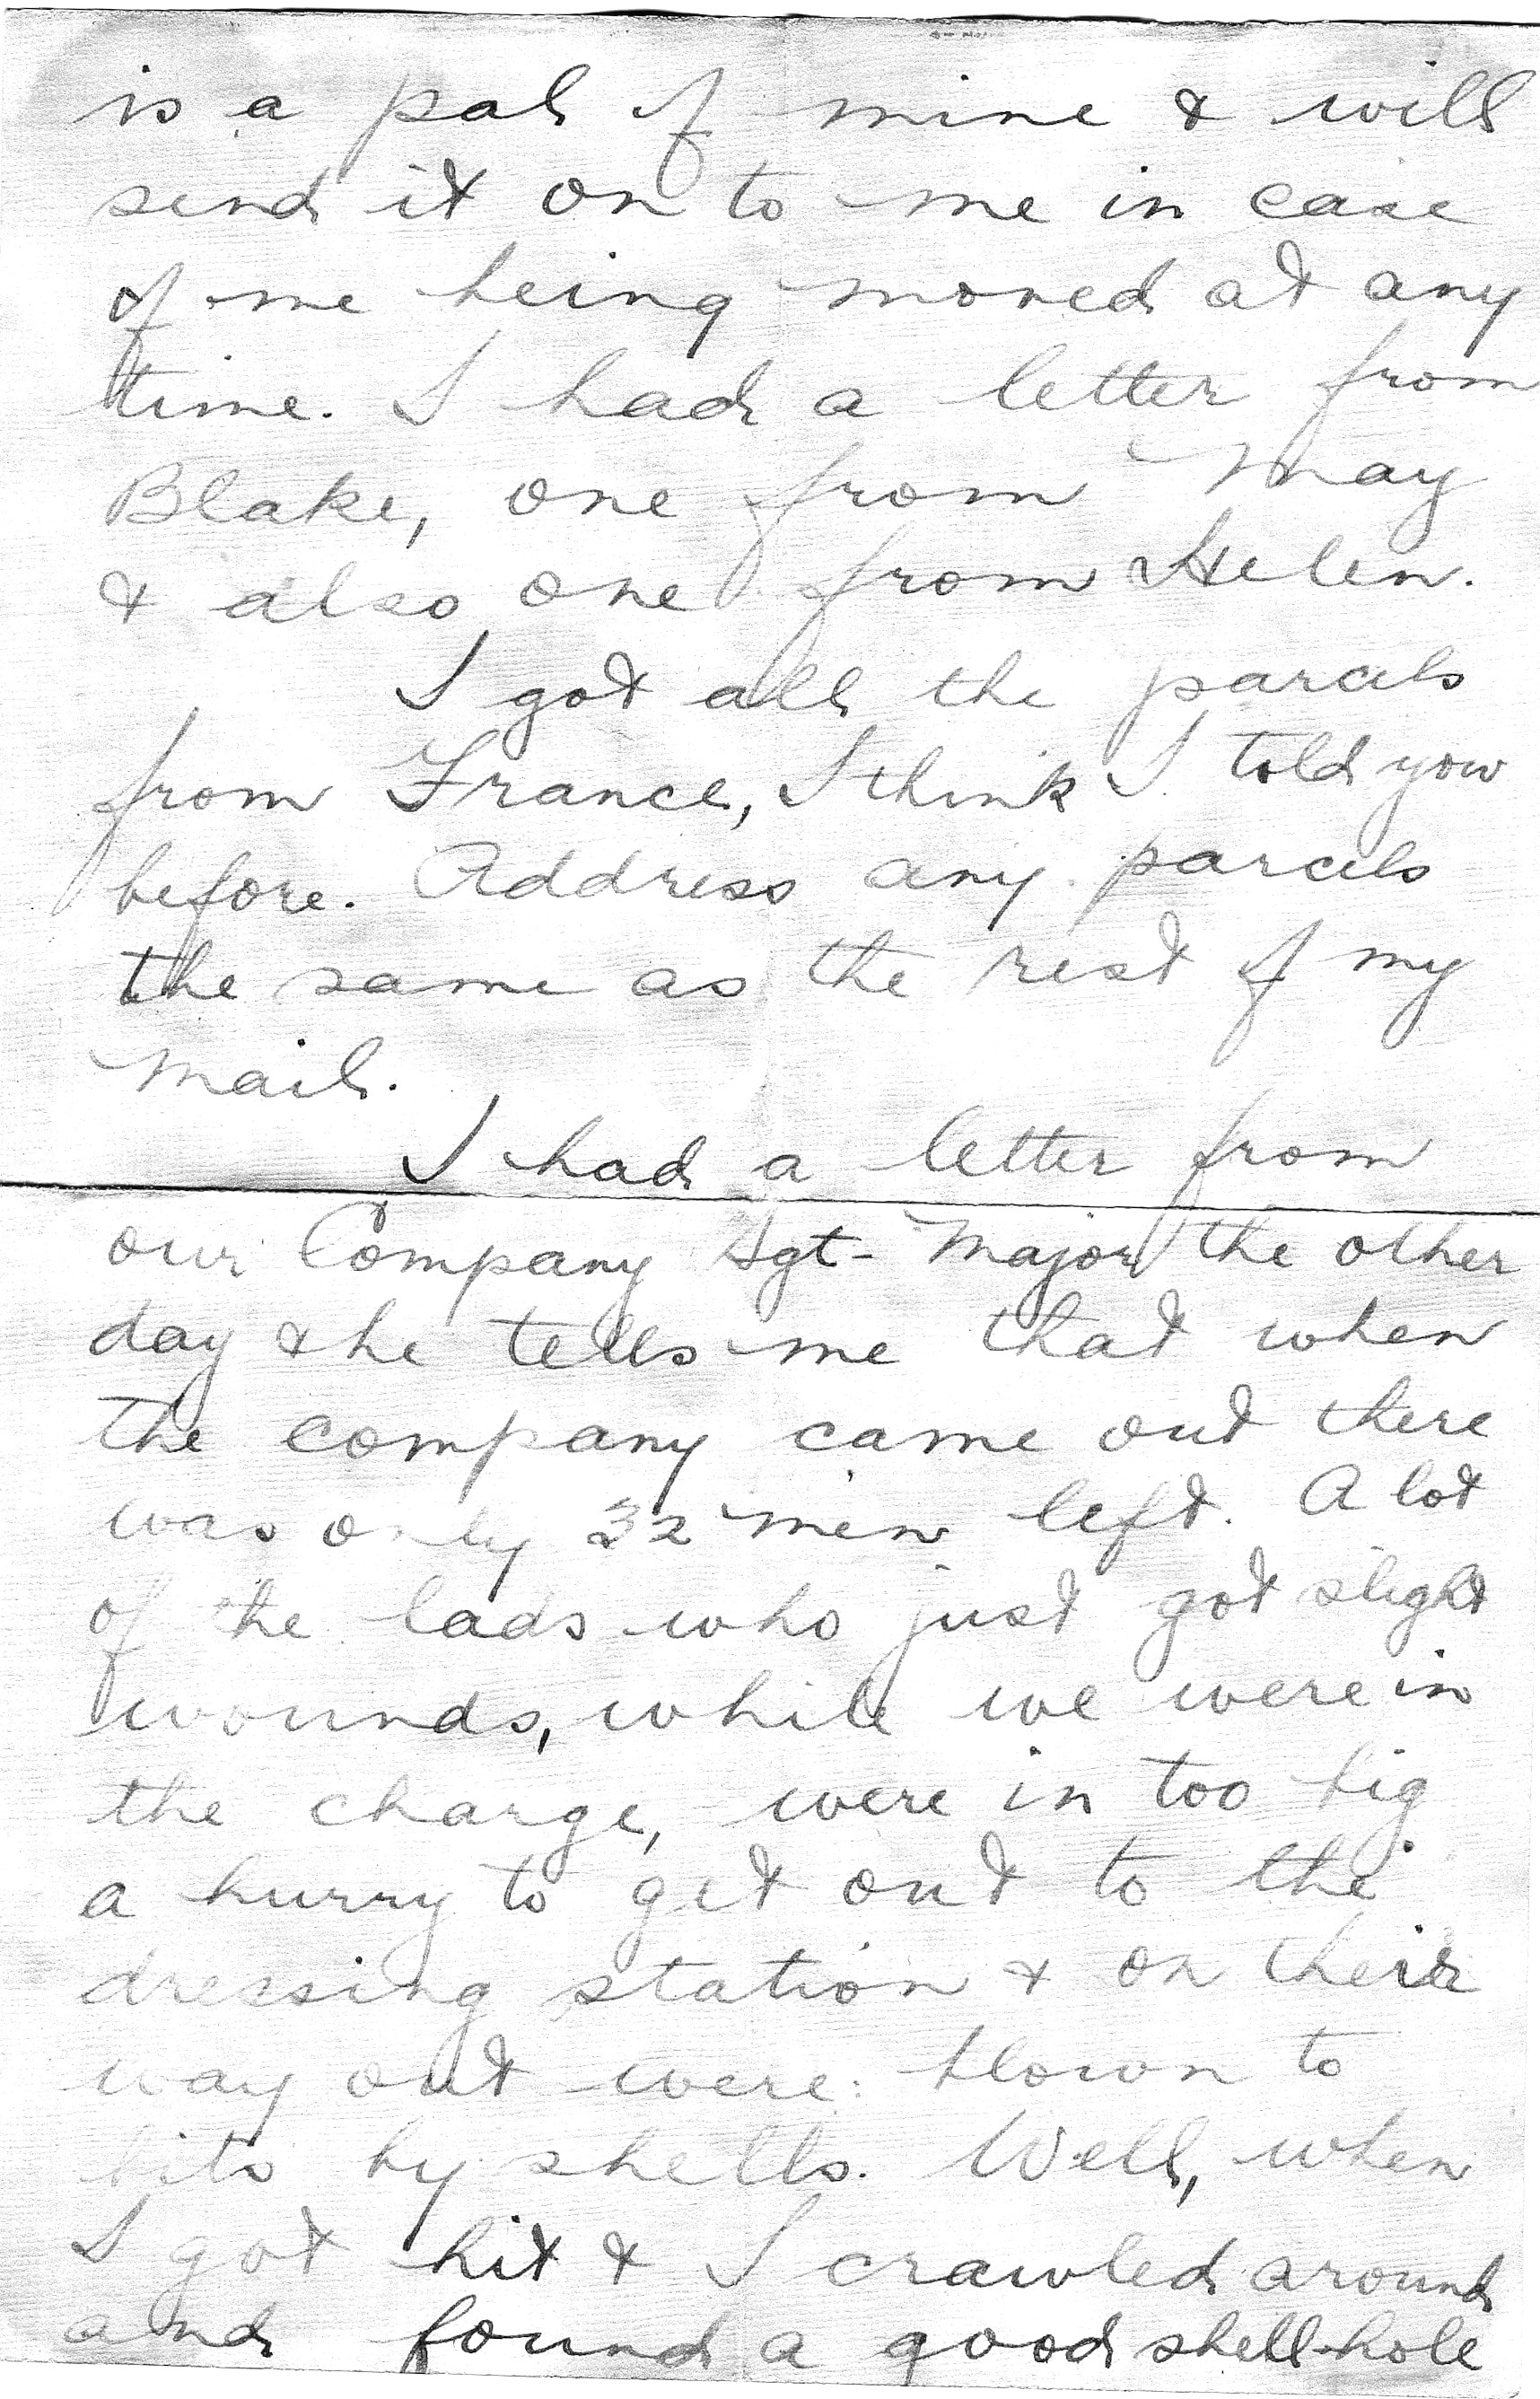 is a pal of mine & will
send it on to me in case
of me being moved at any
time. I had a letter from
Blake, one from May
& also one from Helen.
I got all the parcels
from France, I think I told you
before. Address any parcels
the same as the rest of my
mail.
I had a letter from
our Company Sgt-Major the other
day & he tells me that when
the company came out there
was only 32 men left. A lot
of the lads who just got slight
wounds, while we were in
the charge, were in too big
a hurry to get out to the
dressing station & on their
way out were blown to
bits by shells. Well, when
I got hit & I crawled around
and found a good shell-hole